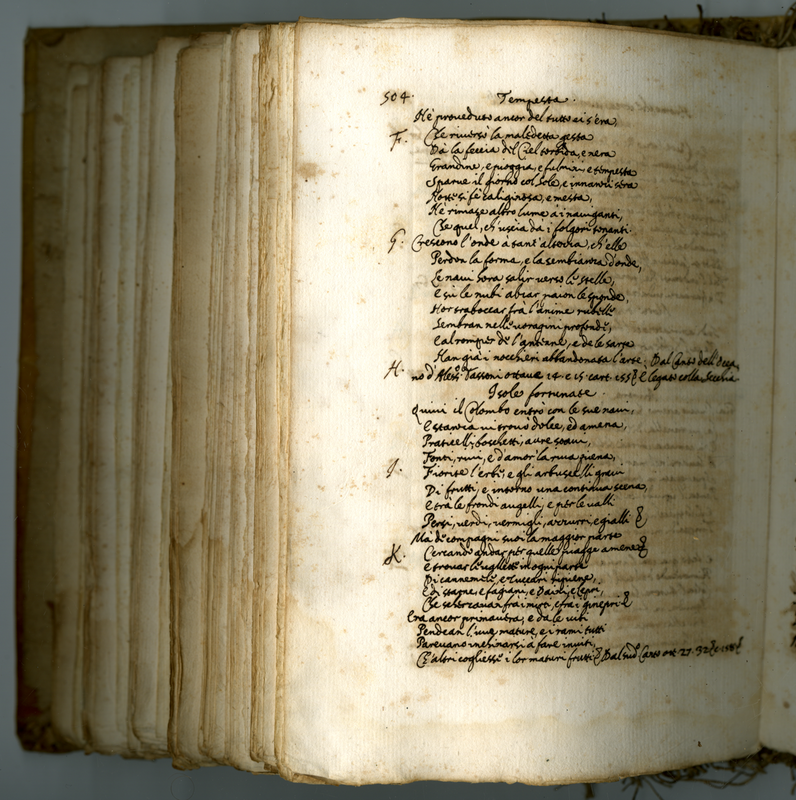 504. Tempesta.
Nè proveduto ancor del tutto ai s'era,
F. Che riversò la maledetta gesta
Da la feccia del Ciel torbida, e nera
Grandine, e pioggia, e fulmini, e tempesta
Sparve il giorno col Sole, e innanzi sera
Notte si fè caliginosa, e mesta,
Nè rimase altro lume a i naviganti,
Che quel, ch'uscia da i folgori tonanti.
G. Crescono l'onde à tant'altezza, ch'elle
Perdon la forma, e la sembianza d'onde,
Le navi sora salir verso le stelle,
E sù le nubi alzar paion le sponde,
Hor traboccar frà l'anime rubelle
Sembran nelle voragini profonde,
E al romper de l'antenne, e de le sarte
Han già i nocchieri abbandonata l'arte. Dal Canto dell'Ocea
H. no d'Aless. Tassoni ottava 14. e 15. cart. legato colla Secchia
Isole fortunate.
Quivi il Colombo entrò con le sue navi,
E stanza vi trovò dolce, ed amena,
Praticelli, boschetti, aure soavi,
Fonti, rivi, e d'amor la riva piena,
J. Fiorite l'erbe, e gli arbuscelli gravi
Di frutti, e intorno una continua scena,
E tra le frondi augelli, e per le valli
Persi, verdi, vermigli, azzurri, e gialli
Ma de compagni suoi la maggior parte
K. Cercando andar per quelle piagge amene
E trovar in ogni parte
Di canne mele, e zuccari ripiene,
E di starne, e fagiani, e Daini, e lepri,
Che scherzavan frai mirti, e frai ginepri
Era ancor primavera, e da le viti
Pendean l'uve mature, e i rami tutti
Parevano inchinarsi à fare inviti,
Ch'altri cogliesse i lor maturi frutti Dal sud. Canto ott. 27. 32